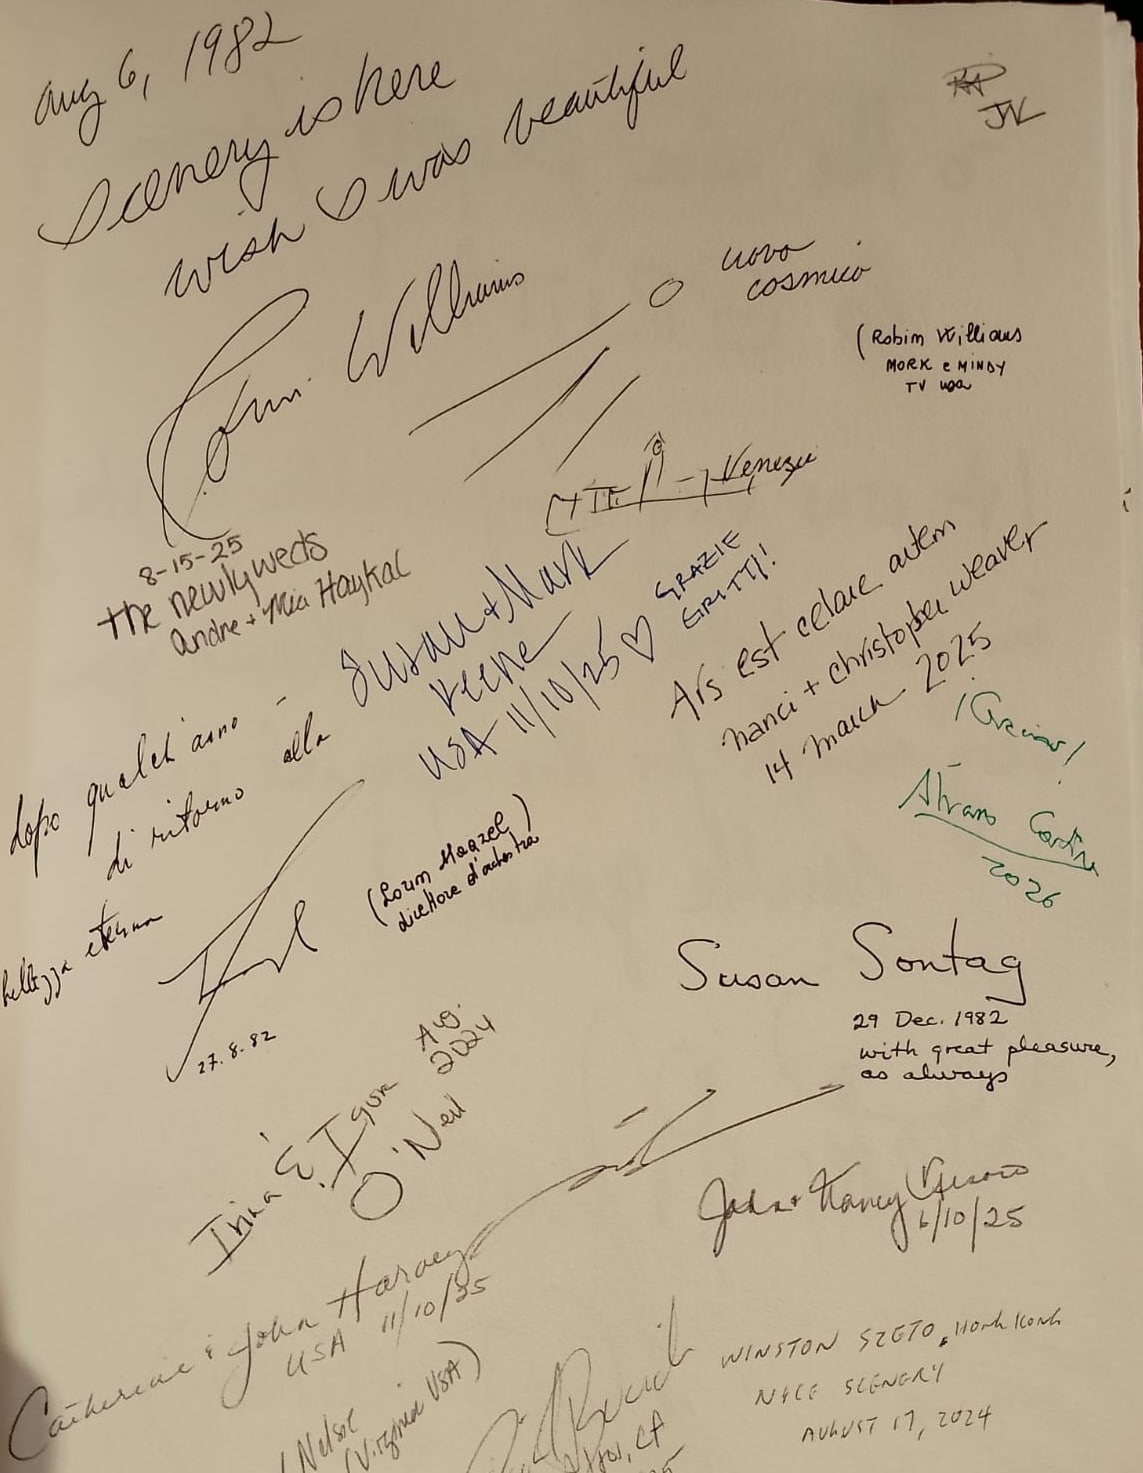 Aug 6, 1982
Scenery is here
wish I was beautiful
Robin Williams
JK
uovo
cosmico
(Robin Williams
MORK e MINDY
TV usa
8-15-25
the newlyweds
Andre + Mia Haykal
Susan + Mark
Keene
USA 11/10/25 ♡
GRAZIE
GRITTI!
Ars est celare autem
nanci + christopher weaver
14 march 2025
¡Gracias!
Alvaro
2026
dopo qualch'anno -
di ritorno alla
bellezza eterna
27.8.82
(Lorin Maazel)
direttore d'orchestra
Susan Sontag
29 Dec. 1982
with great pleasure,
as always
Irina & Igor
O'Neil
Aug.
2024
John + Nancy
6/10/25
Catherine & John Harvey
USA 11/10/25
(Virginia USA)
WINSTON SZETO, Hong Kong
NICE SCENERY
AUGUST 17, 2024
CA